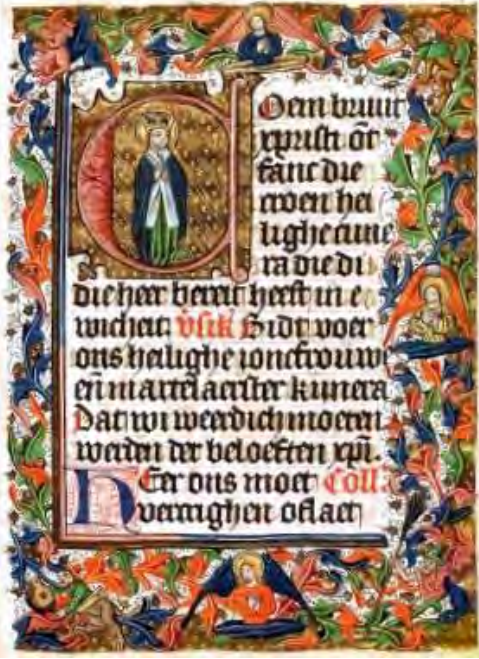 Coem bruut
xpristi ont
fanc die
croen hei
lighe cune
ra die di
die heer bereit heeft in e
wicheit vsik Bidt voer
ons heilighe ioncfrouwe
en̄ martelaerster kunera
Dat wi weerdich moeten
werden der beloeften xp̄i.
HEer ons moet Coll
vercrighen oflaet